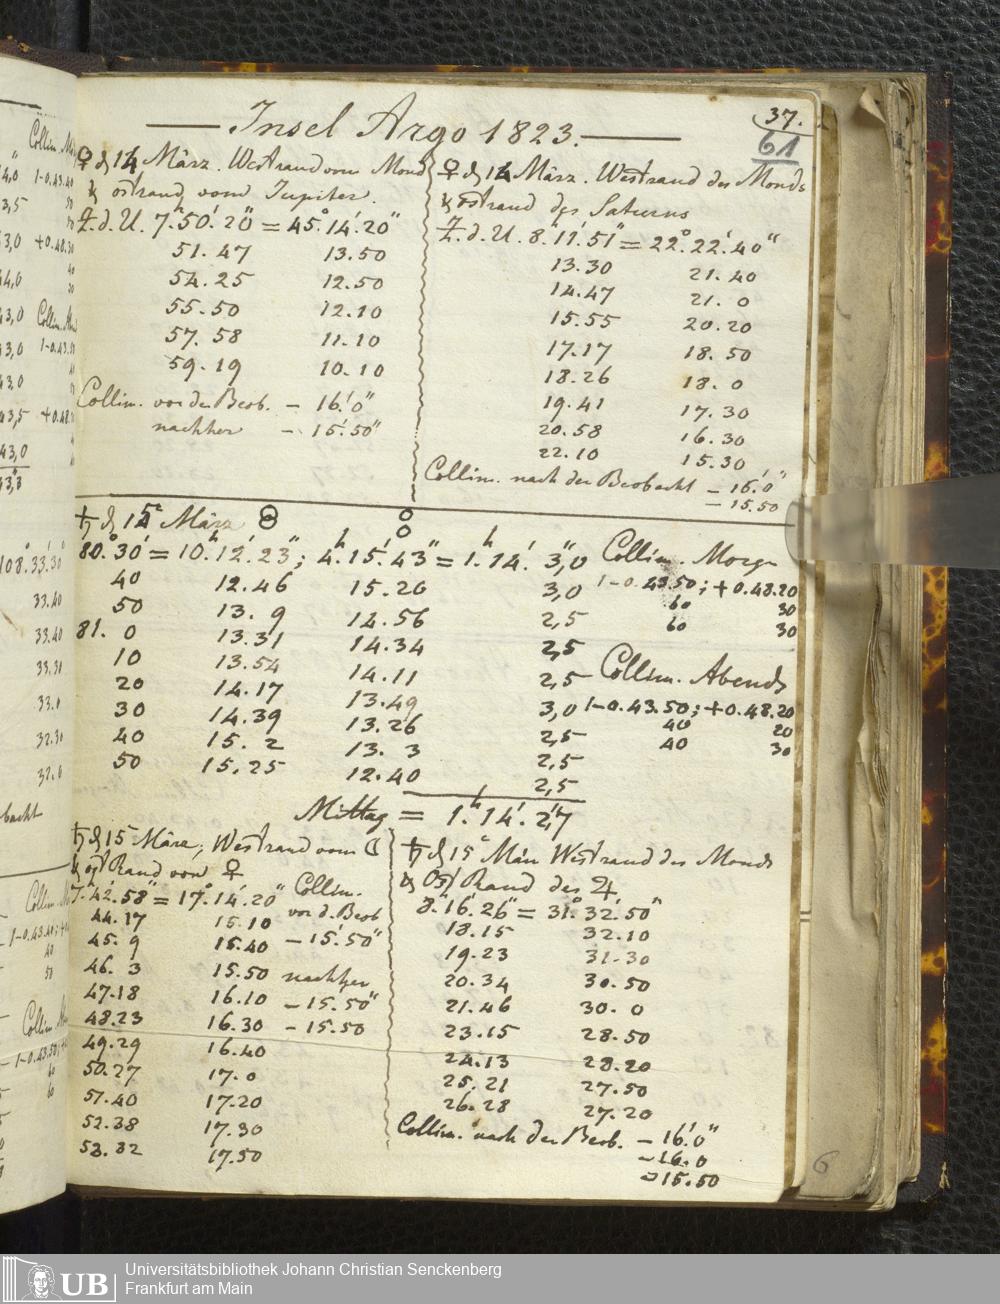 Insel Argo 1823.
37.
61
♀ d 14 März. Westrand vom Mond
& ostrand vom Jupiter.
Z. d. U. 7.h50.'20" = 45.°14.'20"
51.47 13.50
54.25 12.50
55.50 12.10
57.58 11.10
59.19 10.10
Collim. vor der Beob. - 16.'0"
nachher - 15.'50"
♀ d 14 März. Westrand des Monds
& ostrand des Saturns
Z. d. U. 8.h11.'51" = 22.°22.'40"
13.30 21.40
14.47 21.0
15.55 20.20
17.17 18.50
18.26 18.0
19.41 17.30
20.58 16.30
22.10 15.30
Collim. nach der Beobacht - 16.'0"
- 15.50
♄ d 15 März
80.°30' = 10.h12.'23"; 4.h15.'43" = 1.h14.'3,"0
40 12.46 15.20 3,0
50 13.9 14.56 2,5
81.0 13.31 14.34 2,5
10 13.54 14.11 2,5
20 14.17 13.49 3,0
30 14.39 13.26 2,5
40 15.2 13.3 2,5
50 15.25 12.40 2,5
Mittag = 1.h14.'2,"7
Collim. Morg
1-0.43.50; +0.48.20
60 30
60 30
Collim. Abends
1-0.43.50; +0.48.20
40 20
40 30
♄ d 15 März, Westrand vom ☾
& ost Rand von ♀
7.h42.'58" = 17.°14.'20"
44.17 15.10
45.9 15.40
46.3 15.50
47.18 16.10
48.23 16.30
49.29 16.40
50.27 17.0
51.40 17.20
52.38 17.30
53.32 17.50
Collim.
vor d. Beob
- 15.'50"
nachher
- 15.50"
- 15.50
♄ d 15 März Westrand des Monds
& Ost Rand des ♃
8.h16.'26" = 31.°32.'50"
18.15 32.10
19.23 31.30
20.34 30.50
21.46 30.0
23.15 28.50
24.13 28.20
25.21 27.50
26.28 27.20
Collim. nach der Beob. - 16.'0"
- 16.0
- 15.50
6
UB
Universitätsbibliothek Johann Christian Senckenberg
Frankfurt am Main